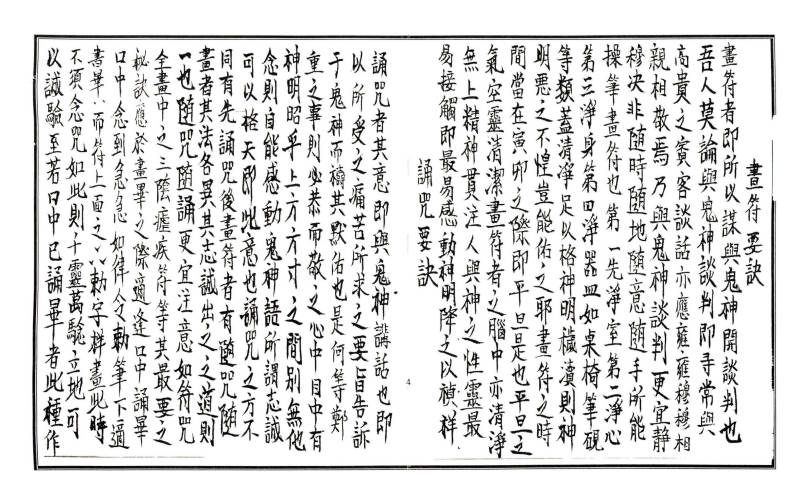 畫符要訣
畫符者即所以謀與鬼神開談判也
吾人莫論與鬼神談判即寻常與
高貴之賓客談話亦應雍雍穆穆相
親相敬焉乃與鬼神談判更宜静
穆決非随時随地随意随手所能
操筆畫符也第一先淨室第二淨心
第三淨身第四淨器皿如桌椅筆硯
等類蓋清淨足以格神明穢瀆則神
明悪之不惶豈能佑之耶畫符之時
間當在寅卯之際即平旦是也平旦之
氣空靈清潔畫符者之腦中亦清淨
無上精神貫注人與神之性靈最
易接觸即最易感動神明降之以禎祥
誦咒要訣
誦咒者其意即與鬼神講話也即
以所受之痛苦所求之要旨告訴
于鬼神而禱其默佑也是何等鄭
重之事則必恭而敬之心中目中有
神明昭乎上方方寸之間别無他
念則自能感動鬼神語所謂志誠
可以格天即此意也誦咒之方不
同有先誦咒後畫符者有随咒随
畫者其法各異其志誠出之之道則
一也随咒随誦更宜注意如符咒
全畫中之三陰瘧疾符等其最要之
秘訣應於畫畢之際適逢口中誦畢
口中念到急急如律令勅筆下適
書畢八而符上面之八勅字样畫此時
不須念咒如此則十靈萬驗立地可
以誠驗至若口中已誦畢者此種作
4